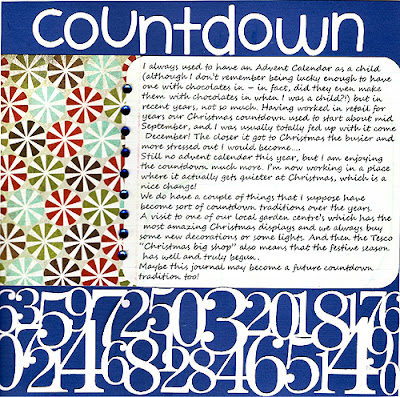 countdown
I always used to have an Advent Calendar as a child
(although I don't remember being lucky enough to have
one with chocolates in - in fact, did they even make
them with chocolates in when I was a child?!) but in
recent years, not so much. Having worked in retail for
years our Christmas countdown used to start about mid
September, and I was usually totally fed up with it come
December! The closer it got to Christmas the busier and
more stressed out I would become....
Still no advent calendar this year, but I am enjoying
the countdown much more. I'm now working in a place
where it actually gets quieter at Christmas, which is a
nice change!
We do have a couple of things that I suppose have
become sort of countdown traditions over the years.
A visit to one of our local garden centre's which has the
most amazing Christmas displays and we always buy
some new decorations or some lights. And then the Tesco
"Christmas big shop" also means that the festive season
has well and truly begun.
Maybe this journal may become a future countdown
tradition too!
6359725032018176
02468284665149